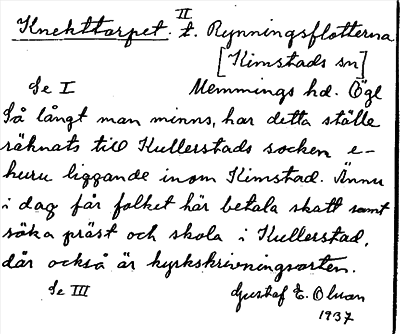 II
Knekttorpet. t. Rynningsflotterna
[Kimstads sn]
Se I Memmings hd. Ögl
Så långt man minns, har detta ställe
räknats till Kullerstads socken e-
huru liggande inom Kimstad. Ännu
i dag får folket här betala skatt samt
söka präst och skola i Kullerstad,
där också är kyrkskrivningsorten.
Se III Gustaf E. Olsson
1937